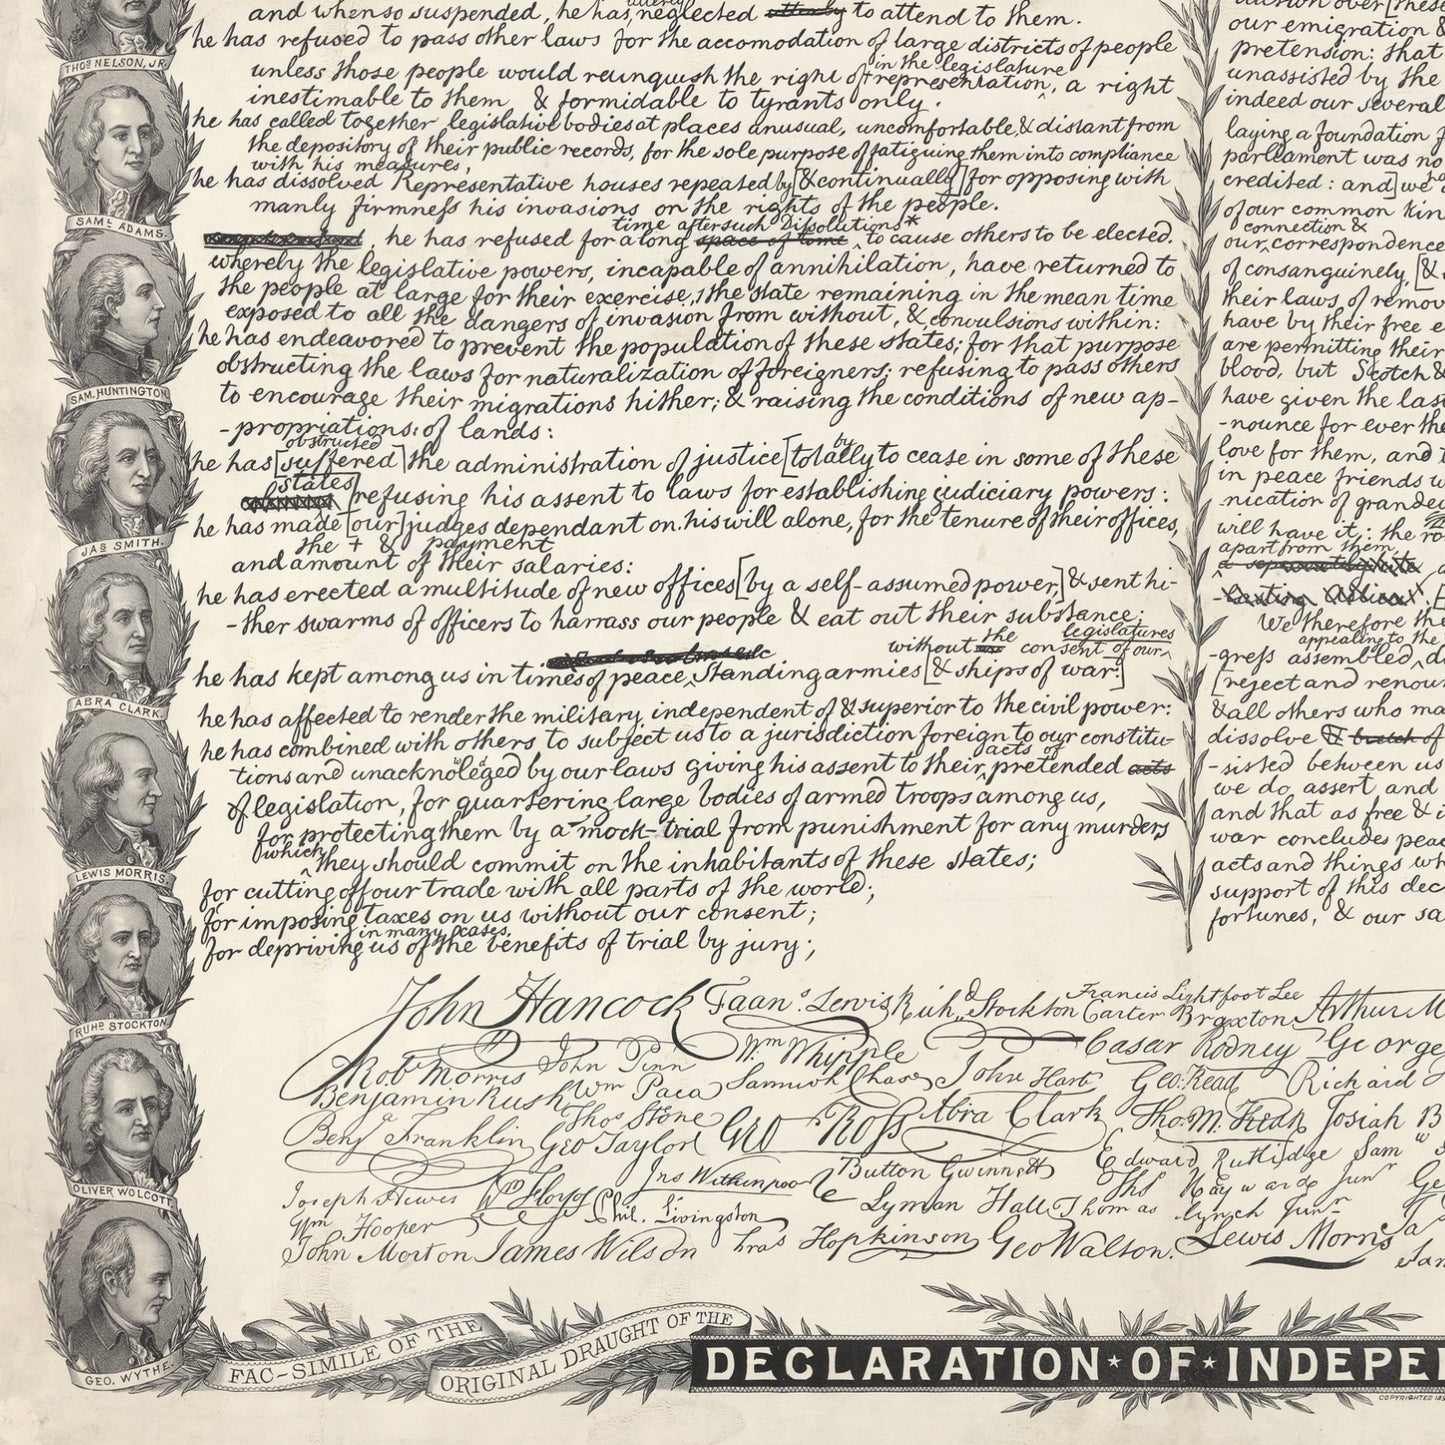 and when so suspended, he has utterly neglected utterly to attend to them.
he has refused to pass other laws for the accomodation of large districts of people
unless those people would reunquish the right of representation in the legislature, a right
inestimable to them, & formidable to tyrants only.
he has called together legislative bodies at places unusual, uncomfortable, & distant from
the depository of their public records, for the sole purpose of fatiguing them into compliance
with his measures,
he has dissolved Representative houses repeatedly [& continually] for opposing with
manly firmness his invasions on the rights of the people.
time after such Dissolutions*
he has refused for a long space of time to cause others to be elected.
whereby the legislative powers, incapable of annihilation, have returned to
the people at large for their exercise, the state remaining in the mean time
exposed to all the dangers of invasion from without, & convulsions within:
he has endeavored to prevent the population of these states; for that purpose
obstructing the laws for naturalization of foreigners; refusing to pass others
to encourage their migrations hither; & raising the conditions of new ap-
-propriations of lands:
obstructed by
he has [suffered] the administration of justice [totally to cease in some of these
states]
refusing his assent to laws for establishing judiciary powers:
he has made [our] judges dependant on his will alone, for the tenure of their offices,
the + & payment
and amount of their salaries:
he has erected a multitude of new offices [by a self-assumed power,] & sent hi-
-ther swarms of officers to harrass our people & eat out their substance:
without the consent of our legislatures
he has kept among us in times of peace, Standing armies [& ships of war:]
he has affected to render the military, independent of & superior to the civil power:
he has combined with others to subject us to a jurisdiction foreign to our constitu-
acts of
tions and unacknoleged by our laws giving his assent to their pretended acts
of legislation, for quartering large bodies of armed troops among us,
for protecting them by a mock-trial from punishment for any murders
which they should commit on the inhabitants of these states;
for cutting off our trade with all parts of the world;
for imposing taxes on us without our consent;
in many cases
for depriving us of the benefits of trial by jury;
our emigration &
pretension: that
unassisted by the
indeed our several
laying a foundation
parliament was no
credited: and] we
of our common kin
connection &
our correspondence
of consanguinity, [&
their laws, of remov
have by their free e
are permitting their
blood, but Scotch &
have given the las
-nounce for ever the
love for them, and
in peace friends w
-nication of grandeu
will have it: the ro
apart from them
We therefore the
appealing to the
-gress assembled, d
[reject and renoun
& all others who ma
dissolve & break of
-sisted between us
we do assert and
and that as free & i
war conclude peac
acts and things wh
support of this dec
fortunes, & our sa
John Hancock Faan.s Lewis Rich.d Stockton Francis Lightfoot Lee Carter Braxton Arthur M
Rob.t Morris John Penn Wm Whipple Caesar Rodney George
Benjamin Rush Wm Paca Samuel Chase John Hart Geo. Read Richard
Benj.a Franklin Thos Stone Geo Taylor Geo Ross Abra Clark Tho. M. Kean Josiah B
Joseph Hewes Wm Floyd Jno Witherspoon Button Gwinnett Edward Rutledge Sam
Wm Hooper Phil. Livingston Lyman Hall Thos Hayward Junr Thomas Lynch Junr. Ge
John Morton James Wilson Fras Hopkinson Geo Walton. Lewis Morris Ja
THOS NELSON, JR.
SAML ADAMS.
SAM. HUNTINGTON.
JAS SMITH.
ABRA CLARK.
LEWIS MORRIS.
RUHD STOCKTON.
OLIVER WOLCOTT.
GEO. WYTHE.
FAC-SIMILE OF THE
ORIGINAL DRAUGHT OF THE
DECLARATION ★ OF ★ INDEPE